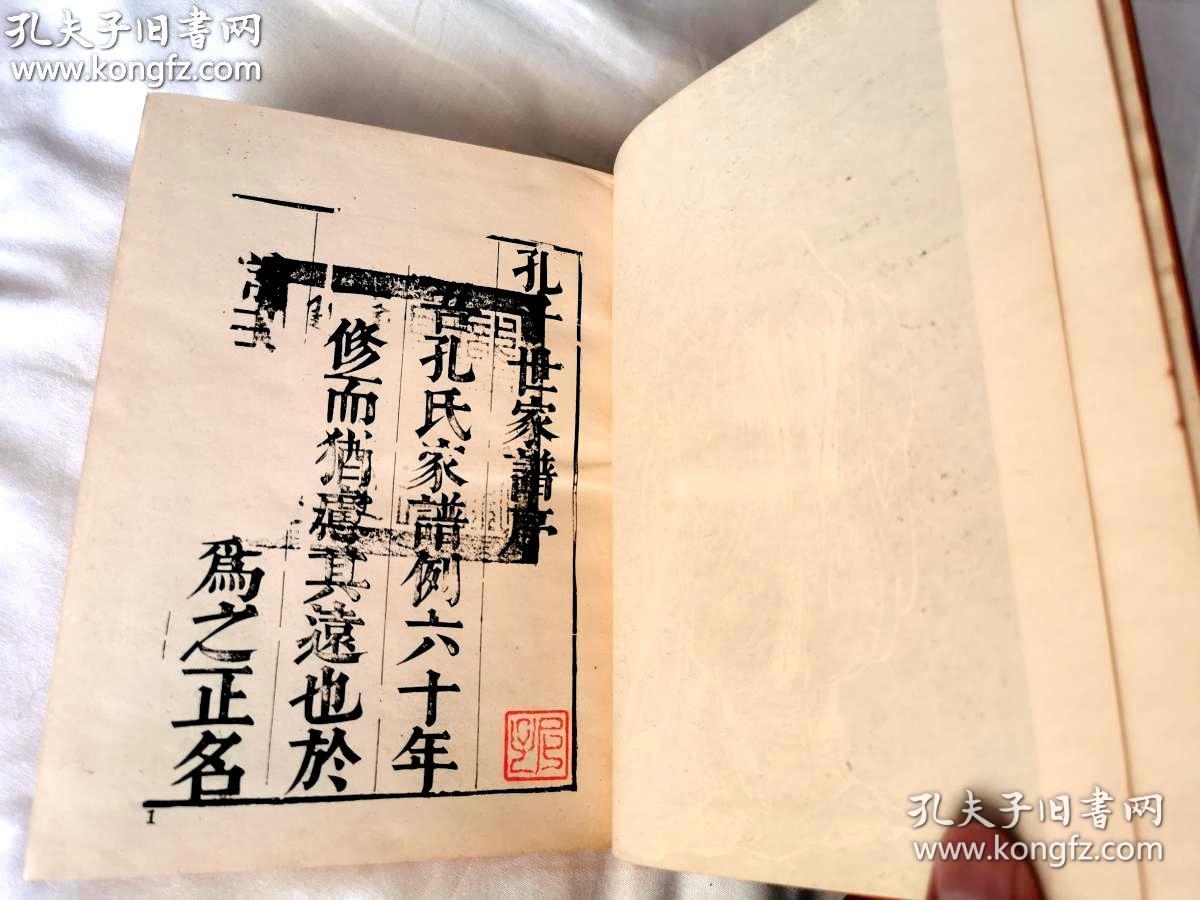 孔夫子旧書网
www.kongfz.com
孔子世家譜序
孔氏家譜例六十年
修而猶其遠也於
為之正名
1
孔夫子旧書网
www.kongfz.com